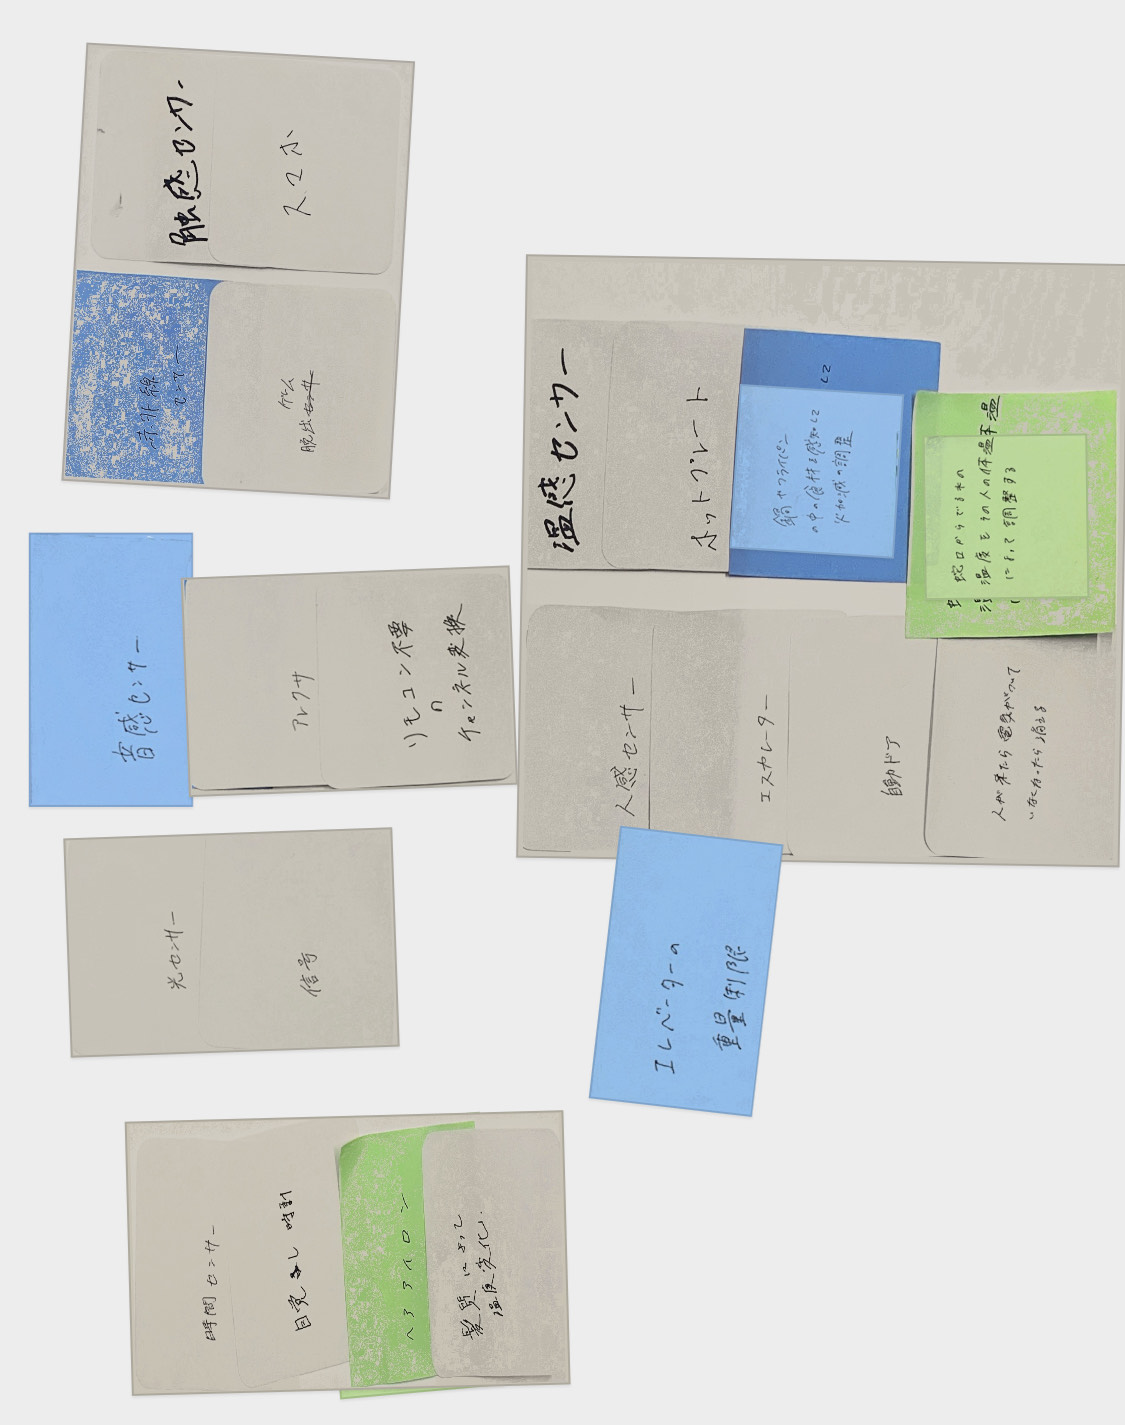 時間センサー
目覚まし時計
ヘアアイロン
髪質によって
温度変化.
光センサー
信号
音感センサー
アレクサ
リモコン不要
の
チャンネル変換
赤外線
センサー
ゲーム
脱出
触感センサー
スマホ
エレベーターの
重量制限
人感センサー
エスカレーター
自動ドア
人が来たら電気がついて
いなくなったら消える
温感センサー
ホットプレート
鍋やフライパン
の中の食材を感知して
火加減の調整
して
蛇口からでる水の
温度をその人の体温
によって調整する